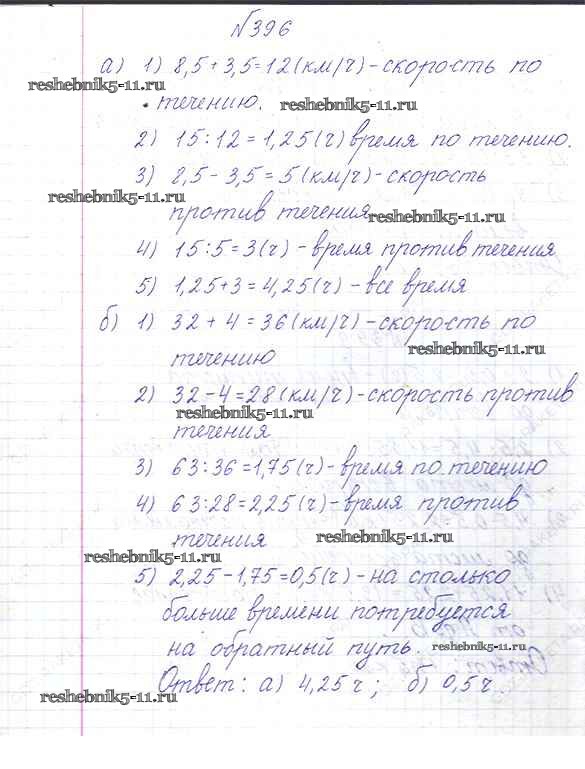 №396
а) 1) 8,5+3,5=12(км/ч)-скорость по
reshebnik5-11.ru
течению.
reshebnik5-11.ru
2) 15:12=1,25(ч) время по течению.
3) 8,5-3,5=5(км/ч)-скорость
reshebnik5-11.ru
против течения
reshebnik5-11.ru
4) 15:5=3(ч) - время против течения
5) 1,25+3=4,25(ч) - все время
б) 1) 32+4=36(км/ч)-скорость по
reshebnik5-11.ru
течению
2) 32-4=28(км/ч)-скорость против
reshebnik5-11.ru
течения
3) 63:36=1,75(ч)-время по течению
4) 63:28=2,25(ч)-время против
reshebnik5-11.ru
течения
reshebnik5-11.ru
5) 2,25-1,75=0,5(ч)-на столько
больше времени потребуется
на обратный путь.
reshebnik5-11.ru
Ответ: а) 4,25ч; б) 0,5ч.
reshebnik5-11.ru